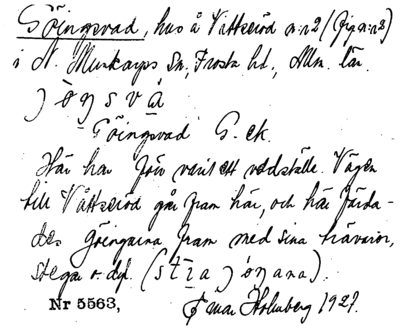 Göingsvad, hus å Våttseröd n:r 2 (Ljg n:r 3)
i N. Mellarps Sn, Frosta hd, Mlm. län.
j ò ŋ s v à
Göingsvad G. ek.
Här har förr varit ett vadställe. Vägen
till Våttseröd går fram här, och här färda-
des göingarna fram med sina trävaror,
stegar o. dyl. (stīa jóŋana).
Nr 5563, Ingmar Holmberg 1927.